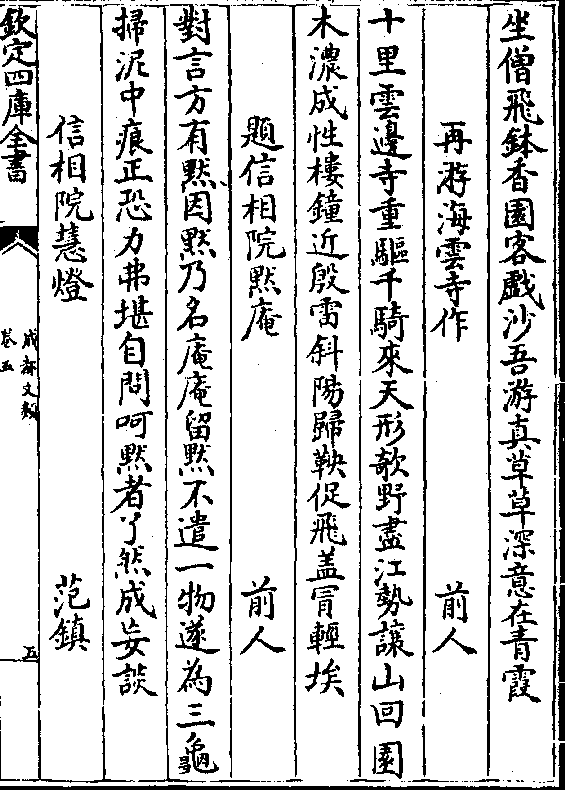 坐僧飛鉢香園客戲沙吾游真草草深意在青霞
再游海雲寺作 前人
十里雲邊寺重驅千騎來天形欹野盡江勢讓山回園
木濃成性樓鐘近殷雷斜陽歸鞅促飛盖冐輕埃
題信相院黙庵 前人
對言方有黙因黙乃名庵庵留黙不遣一物遂為三龜
掃泥中痕正恐力弗堪自問呵黙者了然成妄談
信相院慧燈 范鎮
欽定四庫全書
成都文類
卷五
五